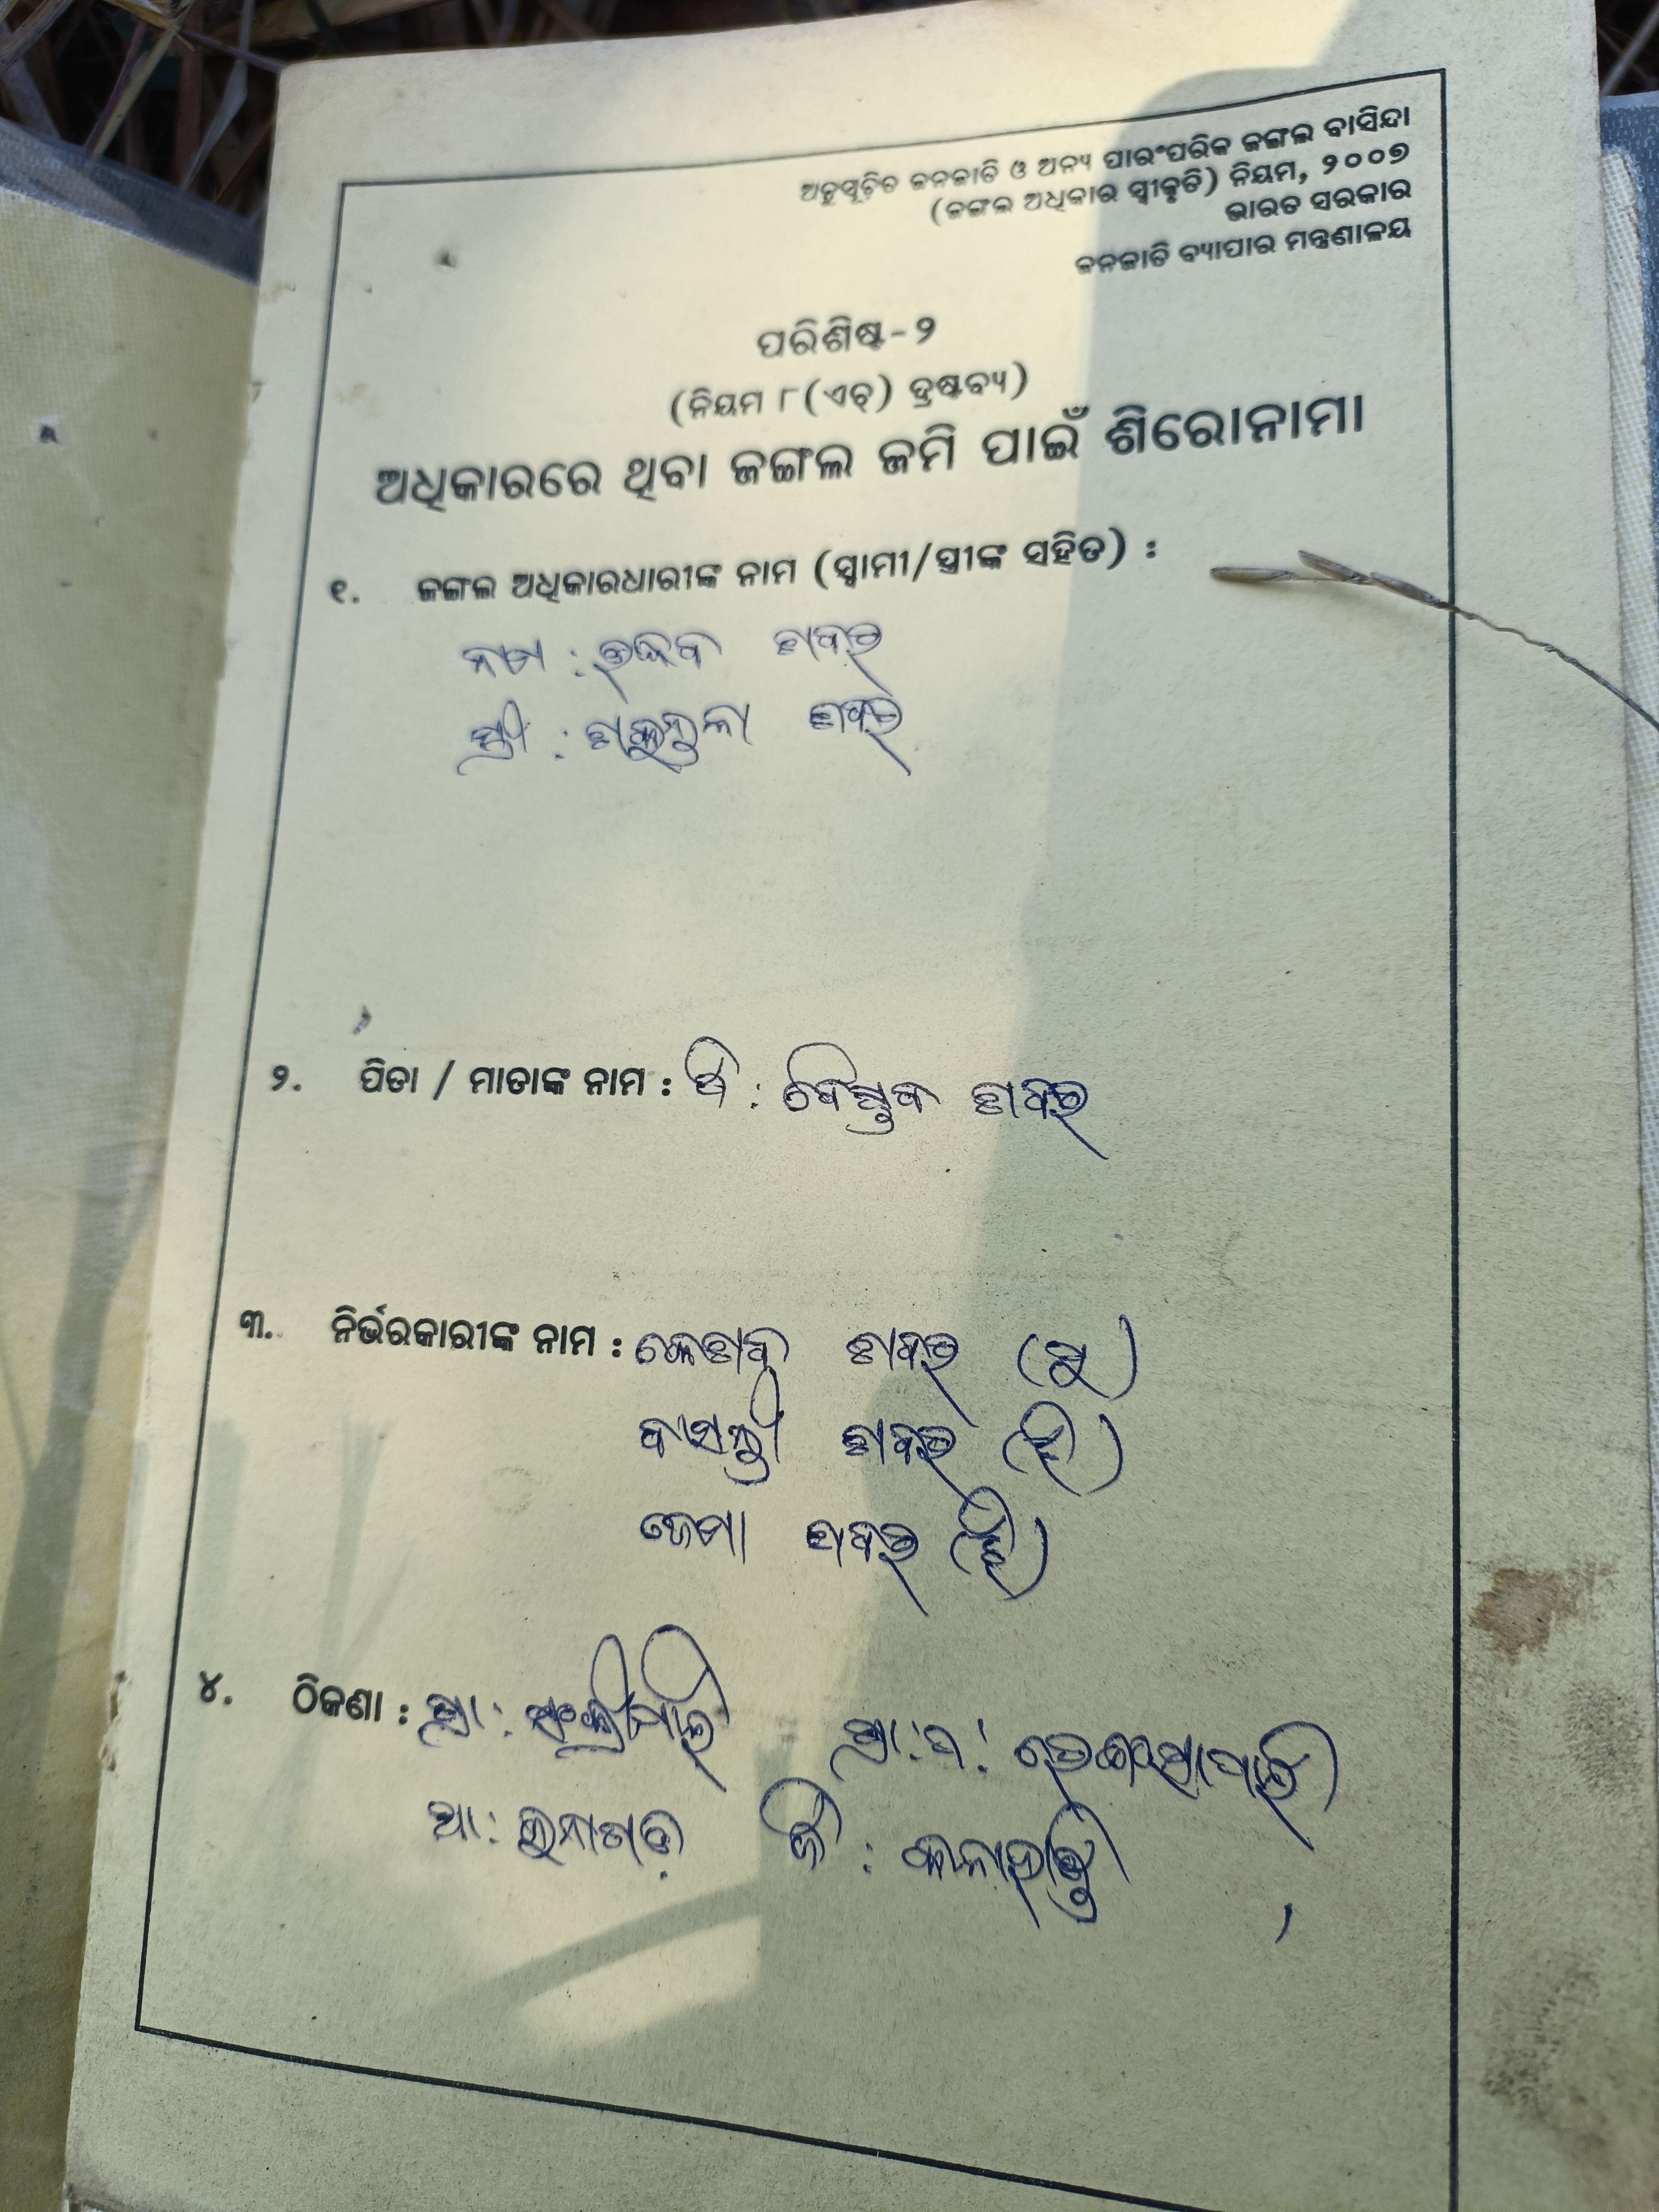 ଅନୁସୂଚିତ ଜନଜାତି ଓ ଅନ୍ୟ ପାରଂପରିକ ଜଙ୍ଗଲ ବାସିନ୍ଦା
(ଜଙ୍ଗଲ ଅଧିକାର ସ୍ୱୀକୃତି) ନିୟମ, ୨୦୦୭
ଭାରତ ସରକାର
ଜନଜାତି ବ୍ୟାପାର ମନ୍ତ୍ରଣାଳୟ
ପରିଶିଷ୍ଟ-୨
(ନିୟମ ୮(ଏଚ୍) ଦ୍ରଷ୍ଟବ୍ୟ)
ଅଧିକାରରେ ଥିବା ଜଙ୍ଗଲ ଜମି ପାଇଁ ଶିରୋନାମା
୧. ଜଙ୍ଗଲ ଅଧିକାରଧାରୀଙ୍କ ନାମ (ସ୍ୱାମୀ/ସ୍ତ୍ରୀଙ୍କ ସହିତ) :
ନାମ : ଉଦ୍ଧବ ଶବର
ସ୍ତ୍ରୀ : ଶକୁନ୍ତଳା ଶବର
୨. ପିତା / ମାତାଙ୍କ ନାମ : ପି : ଶବର
୩. ନିର୍ଭରକାରୀଙ୍କ ନାମ : କେଶବ ଶବର (ପୁ)
ବାସନ୍ତୀ ଶବର (ଝି)
ଜେମା ଶବର (ଝି)
୪. ଠିକଣା : ଗ୍ରା : ଗ୍ରା : ପ :
ଥା : ଜି : କଳାହାଣ୍ଡି